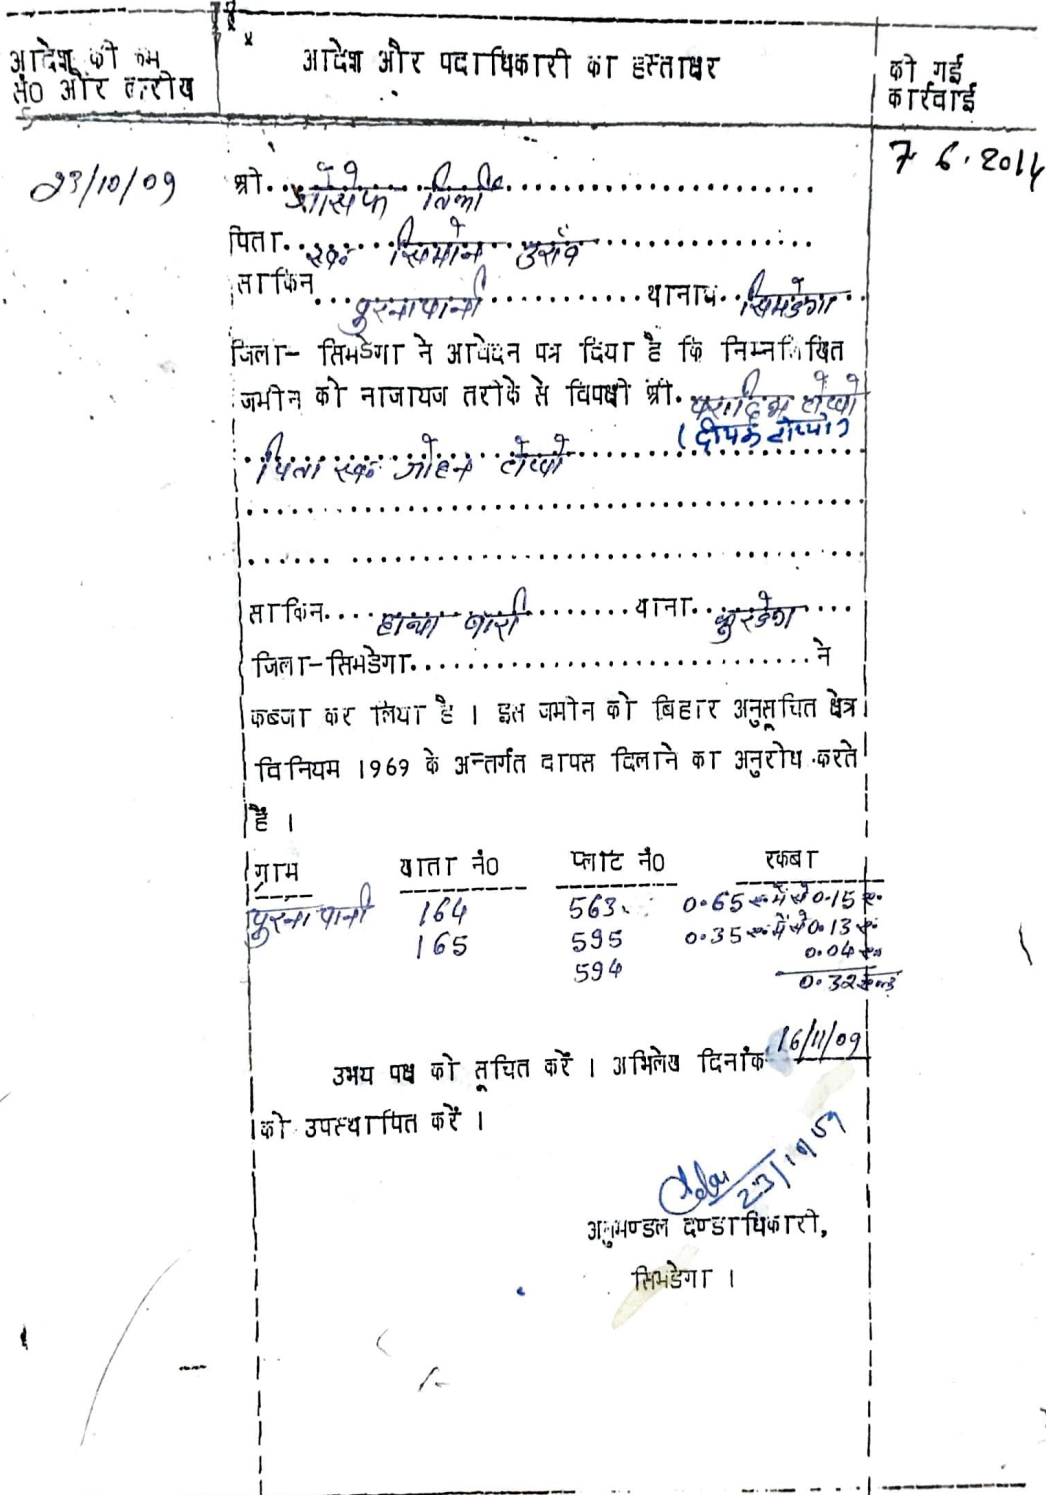 आदेश की कम
सं0 और तारीख
आदेश और पदाधिकारी का हस्ताक्षर
की गई
कार्रवाई
7 6.2014
23/10/09
श्री.. जोसेफ तिर्की
पिता.. स्व० सिमोन उरांव
साकिन... पुरनापानी ... थाना... सिमडेगा
जिला- सिमडेगा ने आवेदन पत्र दिया है कि निम्नलिखित
जमीन को नाजायज तरीके से विपक्षी श्री. टोप्पो
(दीपक टोप्पो)
पिता स्व० जोहन टोप्पो
साकिन.... बारी ... थाना... कुरडेग
जिला-सिमडेगा.... ने
कब्जा कर लिया है । इस जमीन को बिहार अनुसूचित क्षेत्र
विनियम 1969 के अन्तर्गत वापस दिलाने का अनुरोध करते
हैं ।
ग्राम खाता नं0 प्लाट नं0 रकबा
पुरनापानी 164 563 0.65 ए. में से 0.15 ए.
165 595 0.35 ए. में से 0.13 ए.
594 0.04 ए.
0.32 एकड़
उभय पक्ष को सूचित करें । अभिलेख दिनांक 16/11/09
को उपस्थापित करें ।
23/10/09
अनुमण्डल दण्डाधिकारी,
सिमडेगा ।